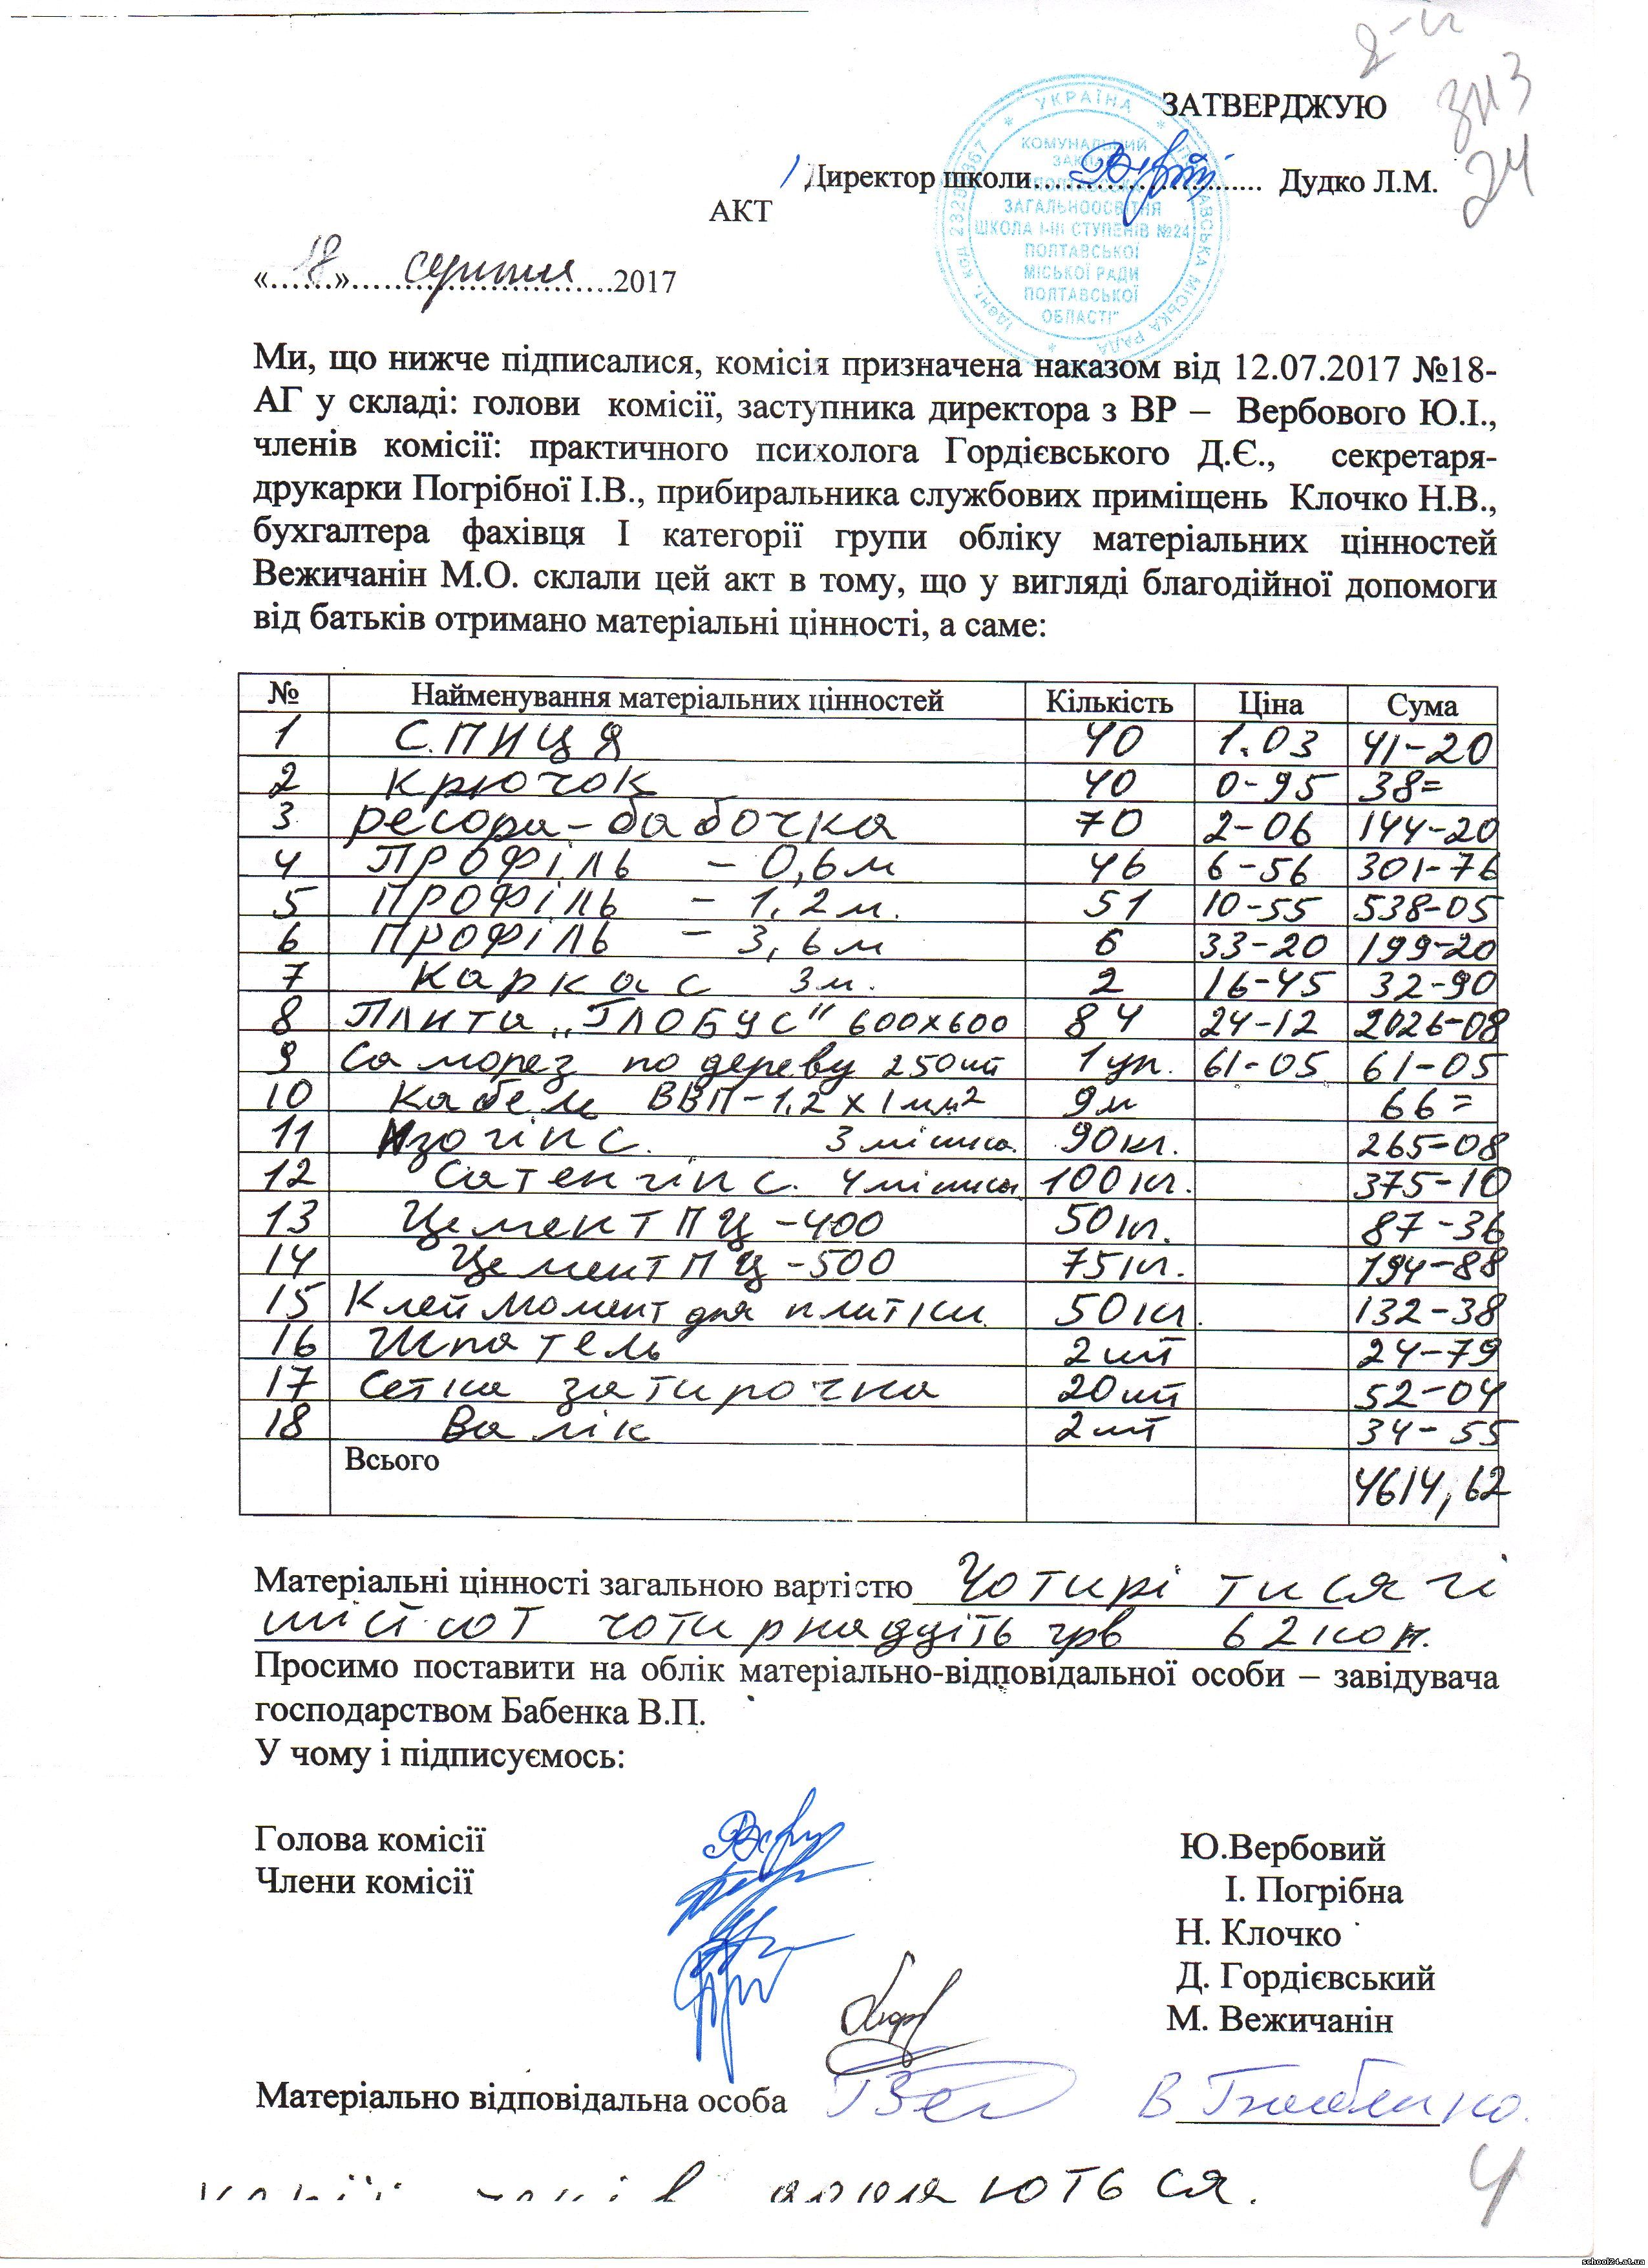 2-й
ЗШ
24
ЗАТВЕРДЖУЮ
Директор школи........................... Дудко Л.М.
УКРАЇНА * ПОЛТАВСЬКА МІСЬКА РАДА * Ідент. код
КОМУНАЛЬНИЙ
ЗАКЛАД
"ПОЛТАВСЬКА
ЗАГАЛЬНООСВІТНЯ
ШКОЛА І-ІІІ СТУПЕНІВ №24
ПОЛТАВСЬКОЇ
МІСЬКОЇ РАДИ
ПОЛТАВСЬКОЇ
ОБЛАСТІ"
АКТ
«18» серпня 2017
Ми, що нижче підписалися, комісія призначена наказом від 12.07.2017 №18-
АГ у складі: голови комісії, заступника директора з ВР – Вербового Ю.І.,
членів комісії: практичного психолога Гордієвського Д.Є., секретаря-
друкарки Погрібної І.В., прибиральника службових приміщень Клочко Н.В.,
бухгалтера фахівця І категорії групи обліку матеріальних цінностей
Вежичанін М.О. склали цей акт в тому, що у вигляді благодійної допомоги
від батьків отримано матеріальні цінності, а саме:
№ Найменування матеріальних цінностей Кількість Ціна Сума
1 Спиця 40 1.03 41-20
2 Крючок 40 0-95 38=
3 ресора-бабочка 70 2-06 144-20
4 Профіль - 0,6м 46 6-56 301-76
5 Профіль - 1,2м. 51 10-55 538-05
6 Профіль - 3,6м 6 33-20 199-20
7 Каркас 3м. 2 16-45 32-90
8 Плита „Глобус" 600х600 84 24-12 2026-08
9 Саморез по дереву 250шт 1уп. 61-05 61-05
10 Кабель ВВП-1,2х1мм² 9м 66=
11 Изогіпс. 3 мішка. 90кг. 265-08
12 Сатенгіпс. 4 мішка 100кг. 375-10
13 Цемент ПЦ-400 50кг. 87-36
14 Цемент ПЦ-500 75кг. 194-88
15 Клей Момент для плитки 50кг. 132-38
16 Шпатель 2шт 24-79
17 Сетка затирочна 20шт 52-04
18 Валік 2шт 34-55
Всього 4614,62
Матеріальні цінності загальною вартістю Чотирі тисячі
шістсот чотирнадцять грв 62коп.
Просимо поставити на облік матеріально-відповідальної особи – завідувача
господарством Бабенка В.П.
У чому і підписуємось:
Голова комісії Ю.Вербовий
Члени комісії І. Погрібна
Н. Клочко
Д. Гордієвський
М. Вежичанін
Матеріально відповідальна особа В Бабенко.
4
school24.at.ua